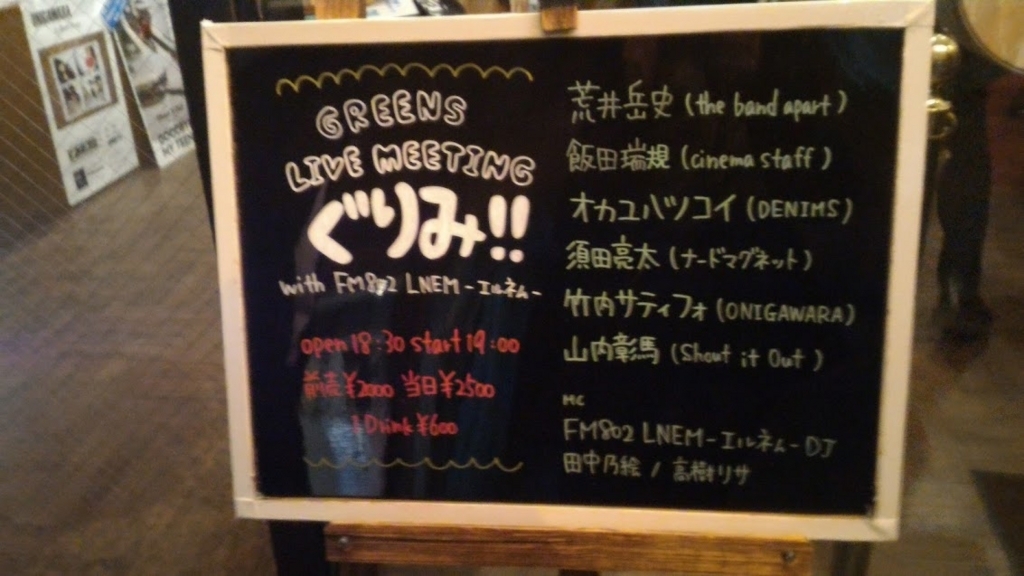 GREENS
LIVE MEETING
ぐりみ!!
with FM802 LNEM -エルネム-
open 18:30 start 19:00
前売¥2000 当日¥2500
1Drink ¥600
荒井岳史 (the band apart)
飯田瑞規 (cinema staff)
オカユハツコイ (DENIMS)
須田亮太 (ナードマグネット)
竹内サティフォ (ONIGAWARA)
山内彰馬 (Shout it Out)
MC
FM802 LNEM-エルネム-DJ
田中乃絵 / 高樹リサ